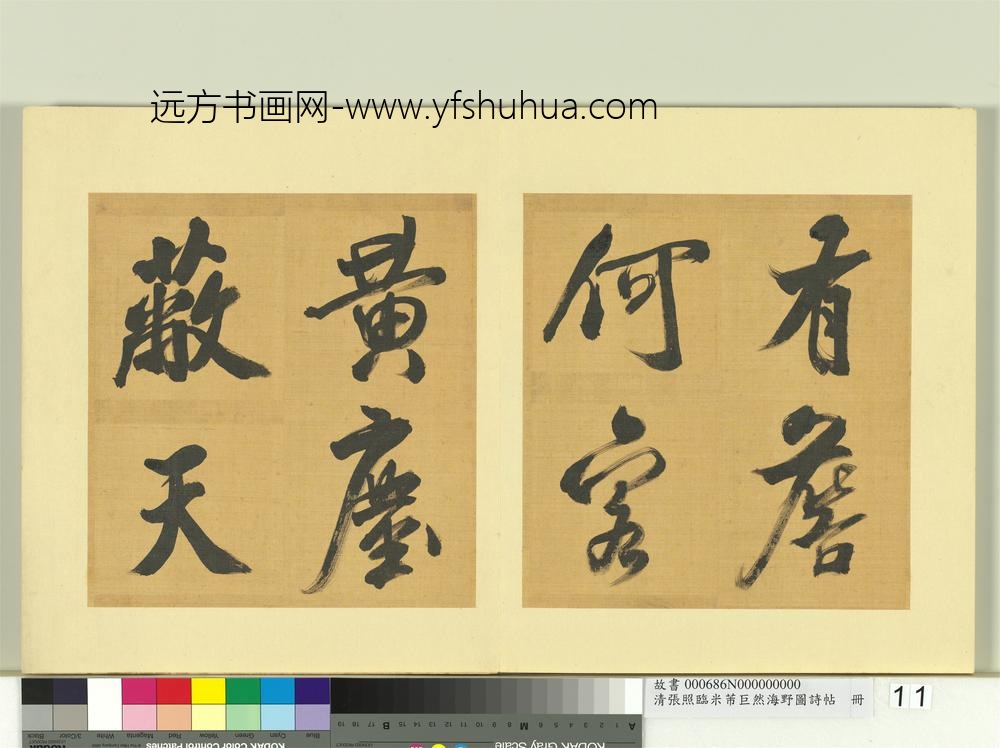 远方书画网-www.yfshuhua.com
有詹
何客
黄塵
蔽天
故書 000686N000000000
清張照臨米芾巨然海野圖詩帖 冊
11
Blue
Cyan
Green
Yellow
Red
Magenta
White
3/Color
Black
KODAK Color Control Patches
KODAK Gray Scale
A 1 2 3 4 5 6 M 8 9 10 11 12 13 14 15 B 17 18 19